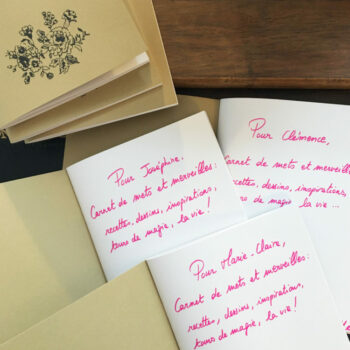 Pour Joséphine,
Carnet de mets et merveilles:
recettes, dessins, inspirations,
tours de magie, la vie!
Pour Clémence,
Carnet de mets et merveilles
recettes, dessins, inspirations,
de magie, la vie ...
Pour Marie-Claire,
Carnet de mets et merveilles:
recettes, dessins, inspirations,
tours de magie, la vie!